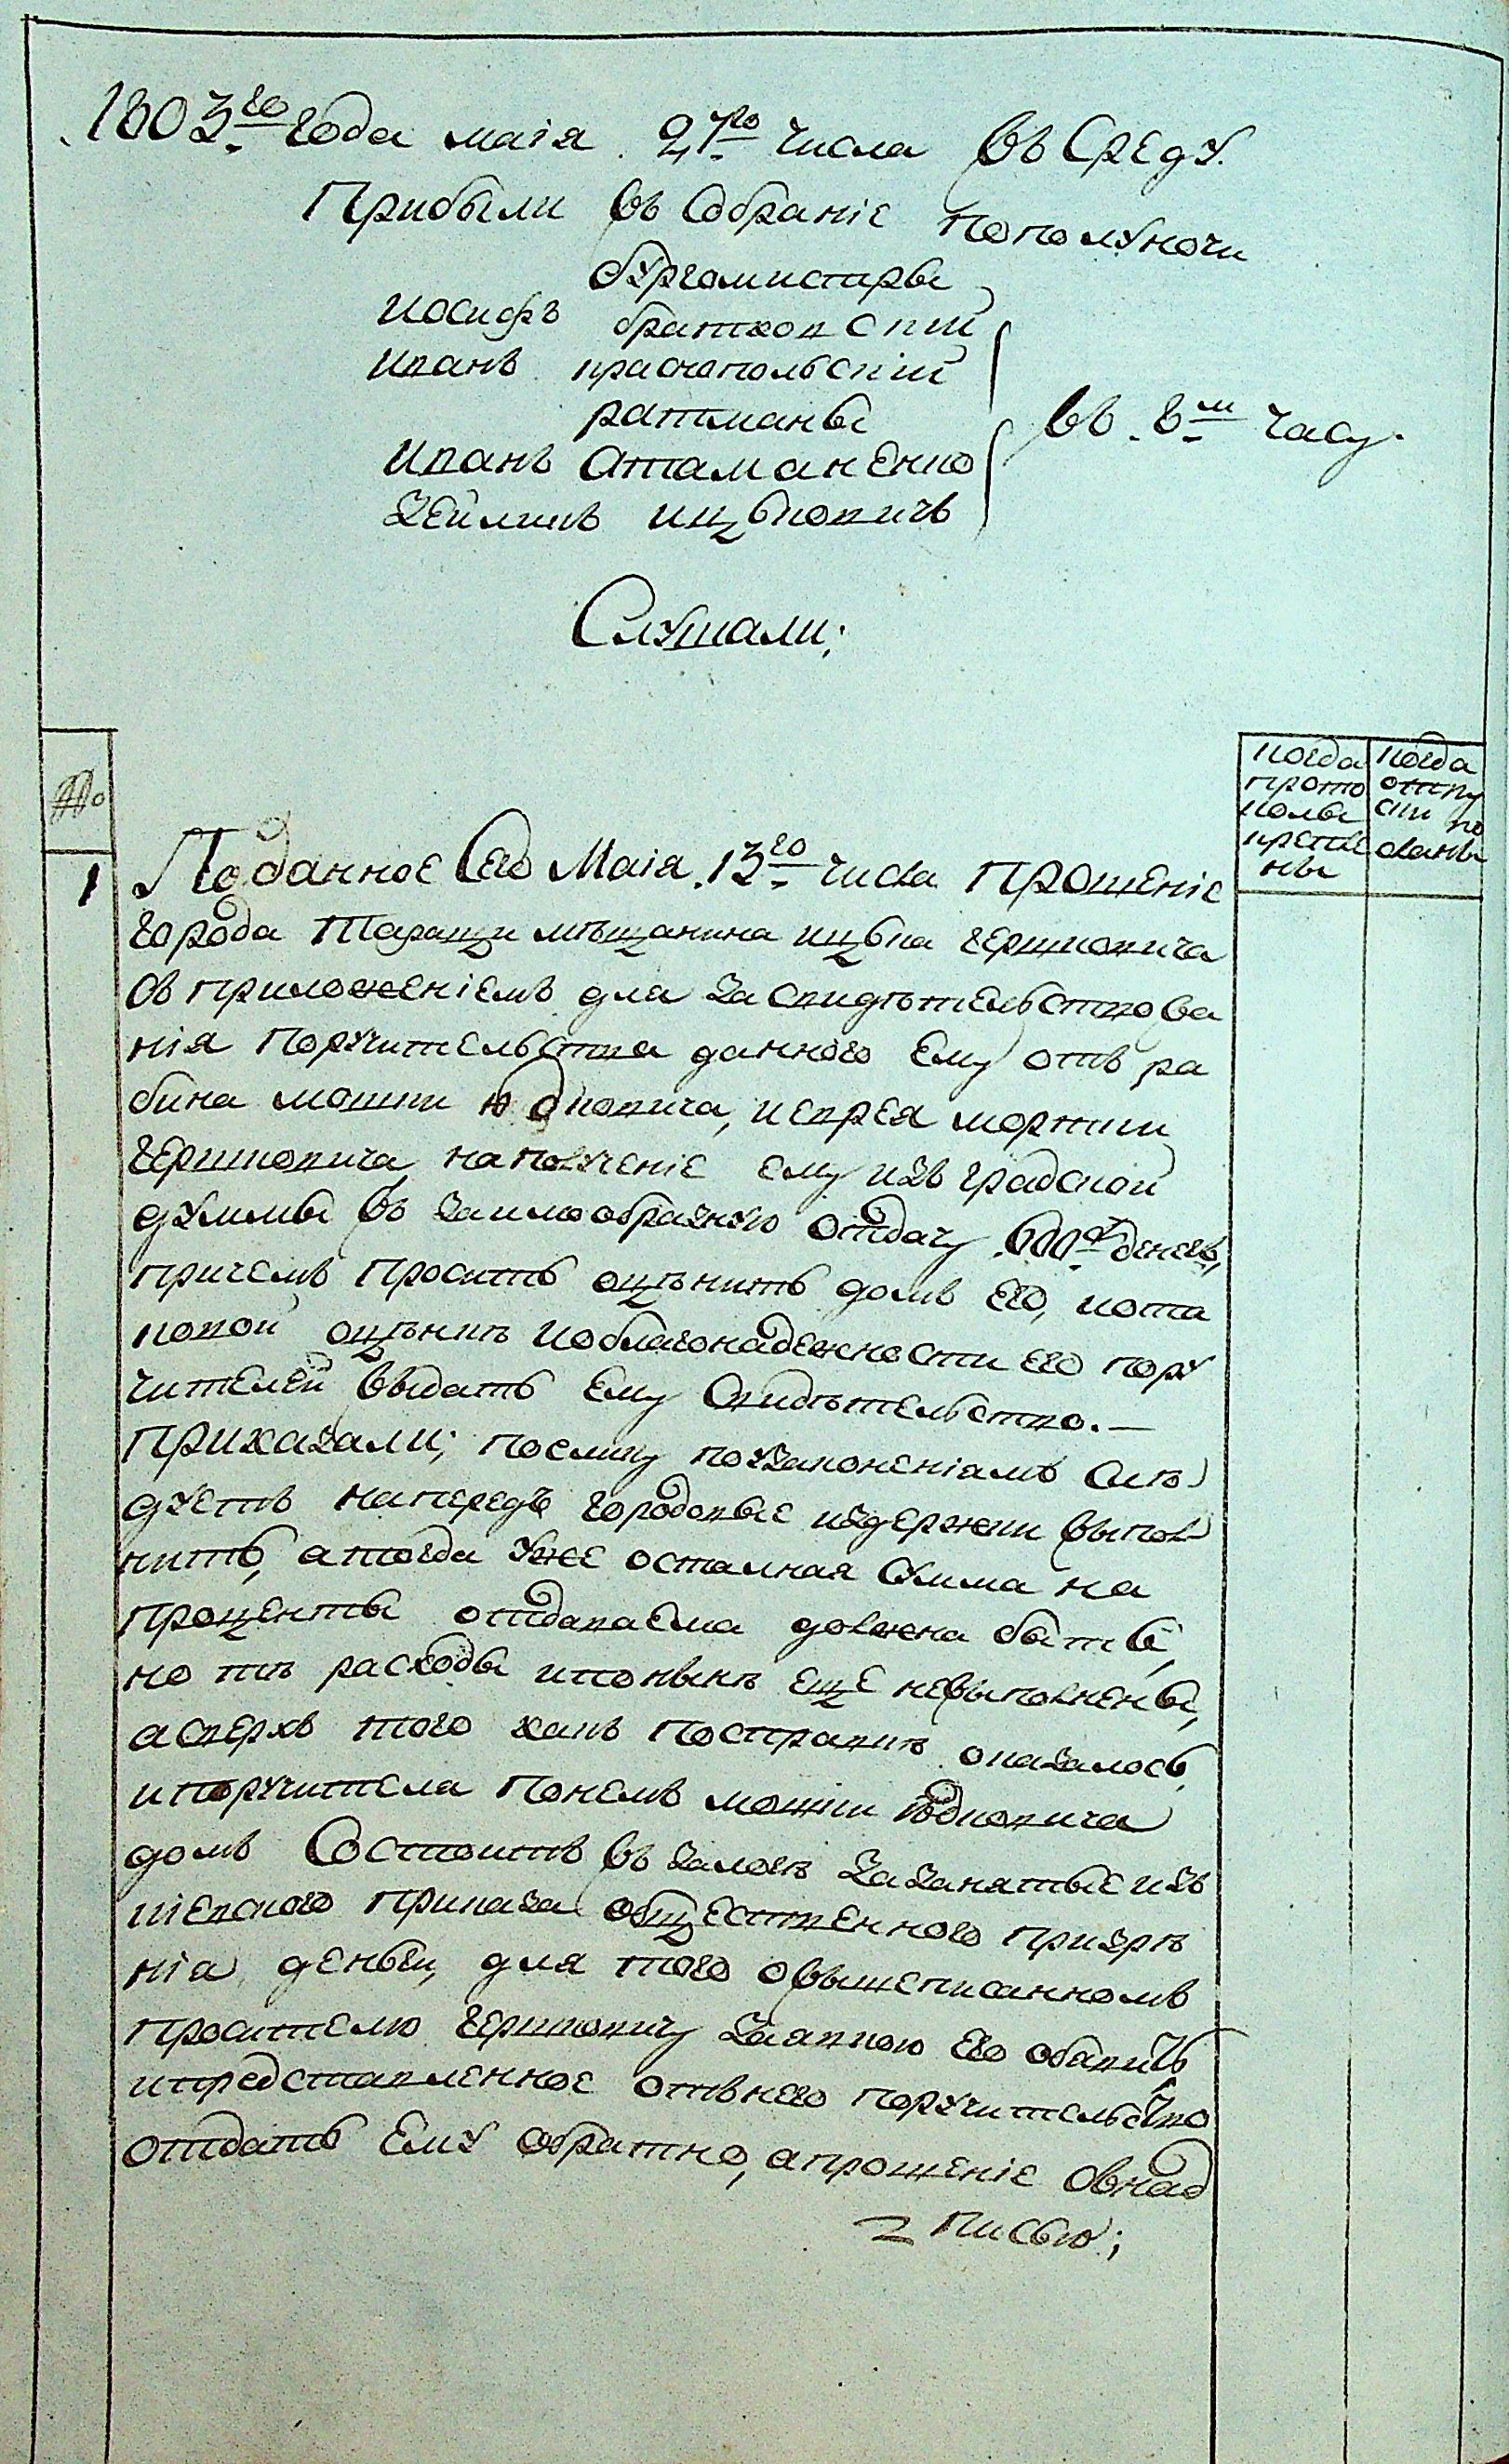 1803го года маія 27го числа въ Среду
Прибыли въ Собраніе пополуночи
бургомистры
Иосифъ братковскій
Иванъ краснопольскій
ратманы
Иванъ Атаманенко
Зейликъ ицьковичъ
въ 8м часу.
Слушали;
№о
1
когда прото колы крепле ны
когда отпу ски по сланы
Поданное Сего Маія 13го числа прошеніе
города Таращи мѣщанина ицька гершковича
съ приложеніемъ для засвидѣтельствова
нія поручительства данного ему отъ ра
бина мошки юдковича, иеврея моршки
гершковича наполученіе ему изъ градской
думмы въ заимообразную отдачу 600р денегъ,
причемъ проситъ оцѣнить домъ его, ипота
ковой оцѣнкѣ иоблагонадежности его пору
чителей выдать ему свидѣтельство. —
приказали; поелику поузаконеніамъ слѣ
дуетъ напередъ городовые издержки выпол
нить, атогда уже осталная сумма на
проценты отдаваема должна быть,
но тѣ расходы ипонынѣ еще невыполнены,
асверхъ того какъ посправкѣ оказалось,
ипоручителя понемъ мошки юдковича
домъ Состоитъ въ залогѣ зазанятые изъ
кіевского приказа общественного призрѣ
ніа деньги, для того овышеписанномъ
просителю гершковичу заявкою его обявить
ипредставленное отънего поручительство
отдать ему обратно, апрошеніе снад
писью;